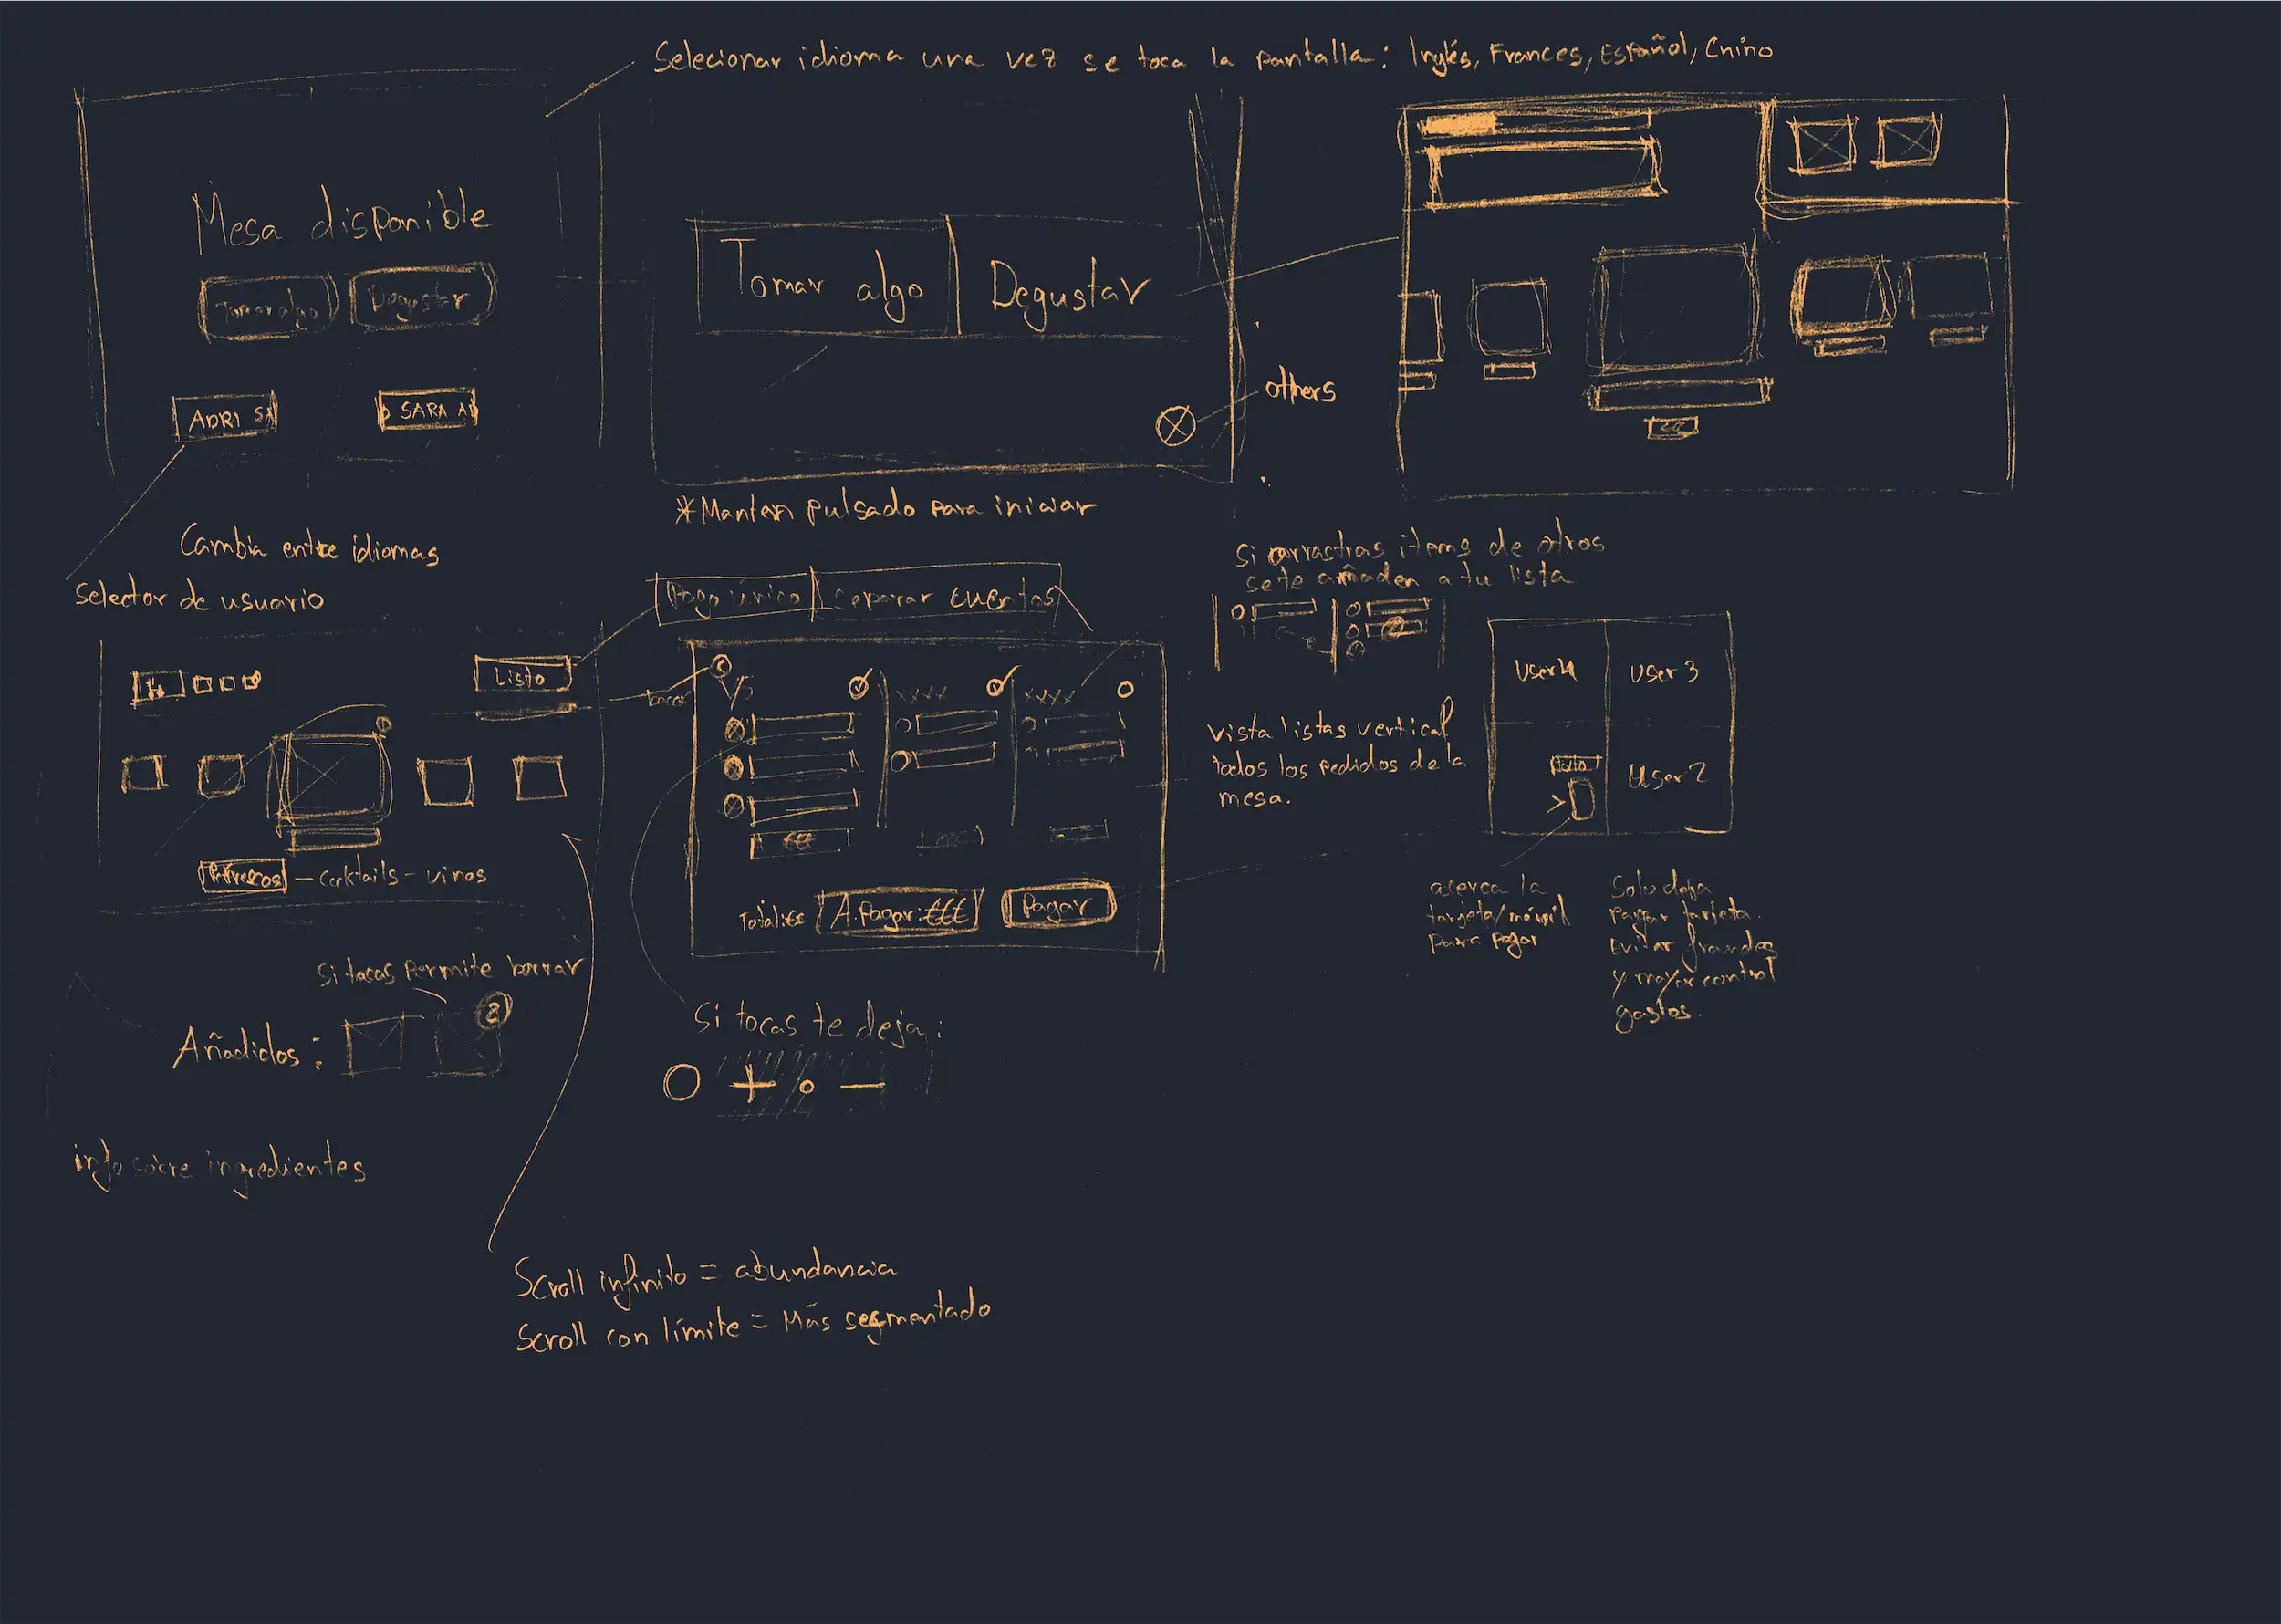 Selecionar idioma una vez se toca la pantalla: Inglés, Frances, Español, Chino
Mesa disponible
Tomar algo
Degustar
ADRI SA
SARA A
Tomar algo
Degustar
others
*Manten pulsado para iniciar
Cambia entre idiomas
Selector de usuario
Listo
Refrescos - cocktails - vinos
Si tocas permite borrar
Añadidos:
2
info sobre ingredientes
Pago único
Separar cuentas
xxxx
xxxx
€€€
Total: €€
A pagar: €€€
Pagar
Si tocas te deja:
+ -
Si arrastras items de otros
se te añaden a tu lista
vista listas vertical
todos los pedidos de la
mesa.
User 4
User 3
User 2
acerca la
tarjeta/móvil
para pagar
Solo deja
pagar tarjeta.
Evitar fraudes
y mayor control
gastos.
Scroll infinito = abundancia
Scroll con límite = Más segmentado